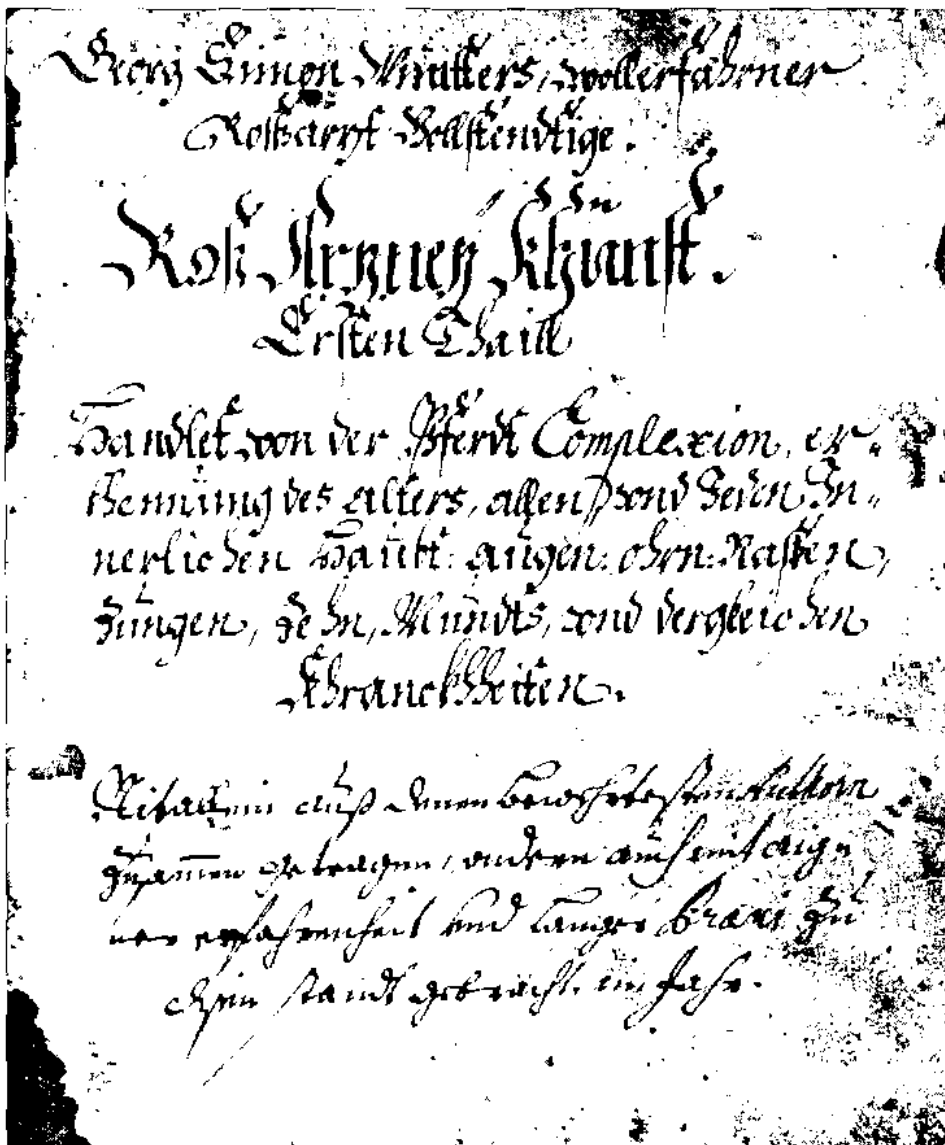 Georg Simon Mullers, wollerfahrner
Roßarzt Vollstendtige.
Roß Artzney Khunst.
Ersten Thaill
Handlet von der Pferdt Complexion, er-
khennung des alters, allen vnd Jeden In-
nerlichen Haubt: augen: ohrn: Nassen,
Zungen, Zehn, Mundts, vnd dergleichen
Khranckheiten.
Nit allein auß denen bewehrtesten
Zusamen getragen, andern auch mit aig-
ner erfahrenheit vnd langer Praxi zu
disem standt gebracht. im Jahr.